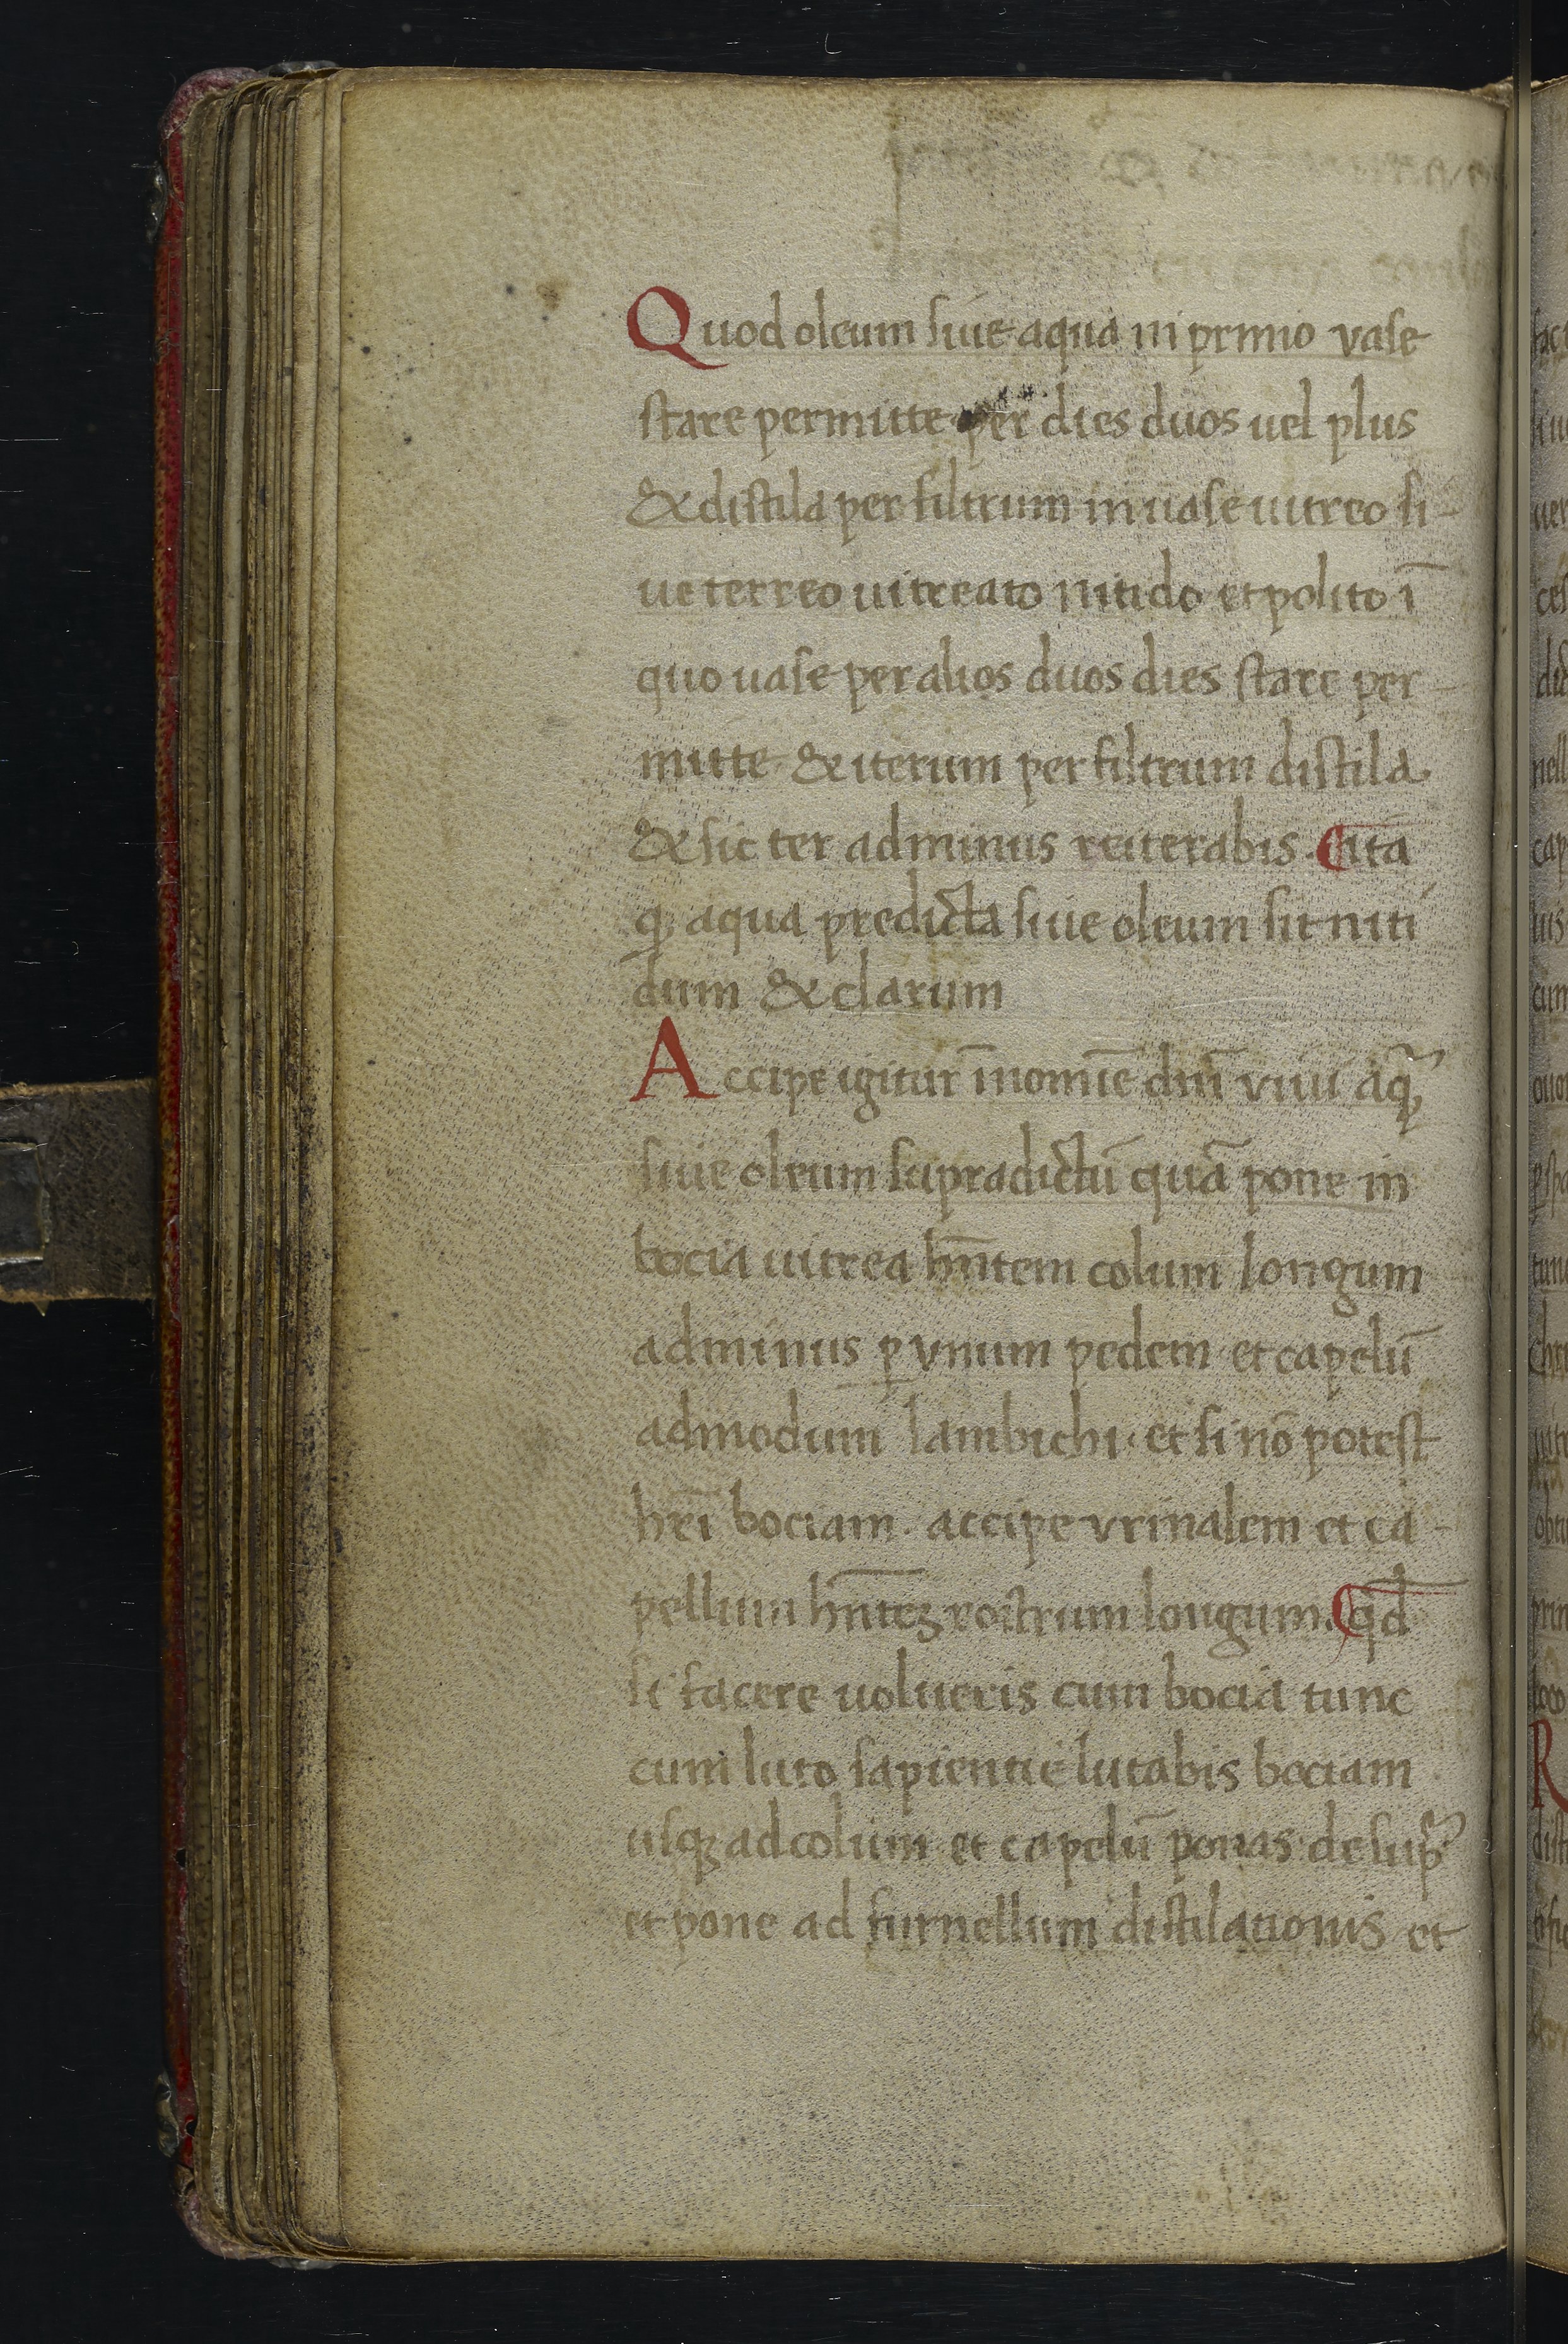 Quod oleum siue aqua in primo vase
stare permitte per dies duos uel plus
& distila per filtrum in uase uitreo si-
ue terreo uitreato nitido et polito ī
quo uase per alios duos dies stare per-
mitte & iterum per filtrum distila
& sic ter adminus reiterabis. ¶ ita
ꝙ aqua predicta siue oleum sit niti
dum & clarum
Accipe igitur īnomīe dnī viui aq̄ꝫ
siue oleum supradictū quā pone in
bocia uitrea hn̄tem colum longum
adminus ꝑ vnum pedem et capelū
admodum lambichi. et si nō potest
hrī bociam. accipe vrinalem et ca-
pellum hn̄teꝫ rostrum longum. ¶ qd̄
si facere uolueris cum bocia tunc
cum luto sapientię lutabis bociam
usqꝫ ad colum et capelū ponas desup̄
et pone ad furnellum distilationis et